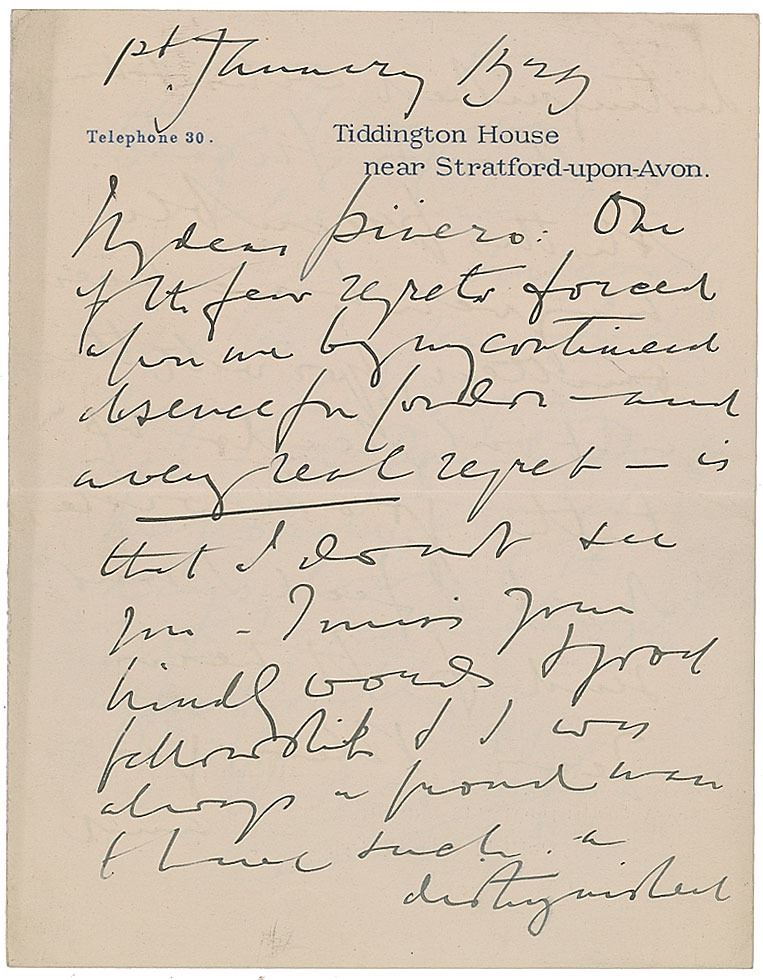 1st January 1929
Telephone 30.
Tiddington House
near Stratford-upon-Avon.
My dear Pinero: One
of the few regrets forced
upon me by my continued
absence from London – and
a very real regret – is
that I do not see
you – I miss your
kindly words & good
fellowship & I was
always a proud man
to have such a
distinguished